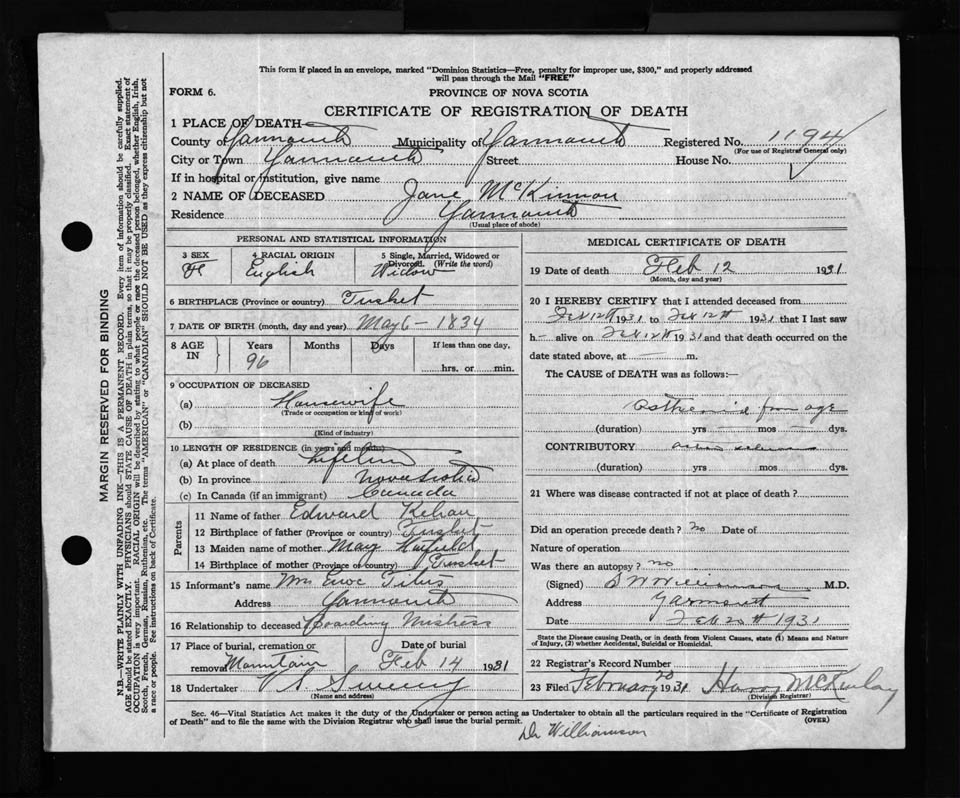 This form if placed in an envelope, marked "Dominion Statistics—Free, penalty for improper use, $300," and properly addressed
will pass through the Mail "FREE"
FORM 6.
PROVINCE OF NOVA SCOTIA
CERTIFICATE OF REGISTRATION OF DEATH
1 PLACE OF DEATH
County of Yarmouth Municipality of Yarmouth Registered No. 1194
(For use of Registrar General only)
City or Town Yarmouth Street House No.
If in hospital or institution, give name
2 NAME OF DECEASED Jane McKinnon
Residence Yarmouth
(Usual place of abode)
PERSONAL AND STATISTICAL INFORMATION
3 SEX 4 RACIAL ORIGIN 5 Single, Married, Widowed or Divorced. (Write the word)
F English Widow
6 BIRTHPLACE (Province or country) Tusket
7 DATE OF BIRTH (month, day and year) May 6 - 1834
8 AGE IN Years Months Days If less than one day,
96 hrs. or min.
9 OCCUPATION OF DECEASED
(a) Housewife
(Trade or occupation or kind of work)
(b)
(Kind of industry)
10 LENGTH OF RESIDENCE (in years and months)
(a) At place of death Lifetime
(b) In province Nova Scotia
(c) In Canada (if an immigrant) Canada
Parents
11 Name of father Edward
12 Birthplace of father (Province or country) Tusket
13 Maiden name of mother Mary Hatfield
14 Birthplace of mother (Province or country) Tusket
15 Informant's name Mrs Titus
Address Yarmouth
16 Relationship to deceased Boarding Mistress
17 Place of burial, cremation or removal Date of burial
Mountain Feb 14 1931
18 Undertaker V S. Sweeny
(Name and address)
MEDICAL CERTIFICATE OF DEATH
19 Date of death Feb 12 1931
(Month, day and year)
20 I HEREBY CERTIFY that I attended deceased from
Feb 12th 1931 to Feb 12th 1931 that I last saw
h— alive on Feb 12th 1931 and that death occurred on the
date stated above, at — m.
The CAUSE of DEATH was as follows:—
asthenia from age
(duration) yrs — mos — dys.
CONTRIBUTORY
(duration) yrs mos dys.
21 Where was disease contracted if not at place of death?
Did an operation precede death? no Date of
Nature of operation
Was there an autopsy? no
(Signed) S W Williamson M.D.
Address Yarmouth
Date Feb 20th 1931
State the Disease causing Death, or in death from Violent Causes, state (1) Means and Nature
of Injury, (2) whether Accidental, Suicidal or Homicidal.
22 Registrar's Record Number
23 Filed February 20 1931 Harry McKinlay
(Division Registrar)
Sec. 46—Vital Statistics Act makes it the duty of the Undertaker or person acting as Undertaker to obtain all the particulars required in the "Certificate of Registration
of Death" and to file the same with the Division Registrar who shall issue the burial permit. (OVER)
Dr Williamson
MARGIN RESERVED FOR BINDING
N.B.—WRITE PLAINLY WITH UNFADING INK—THIS IS A PERMANENT RECORD. Every item of information should be carefully supplied.
AGE should be stated EXACTLY. PHYSICIANS should STATE CAUSE OF DEATH in plain terms, so that it may be properly classified. Exact statement of
OCCUPATION is very important. RACIAL ORIGIN will be described by stating to what people or race the deceased person belonged, whether English, Irish,
Scotch, French, German, Russian, Ruthenian, etc. The terms "AMERICAN" or "CANADIAN" SHOULD NOT BE USED as they express citizenship but not
a race or people. See instructions on back of Certificate.